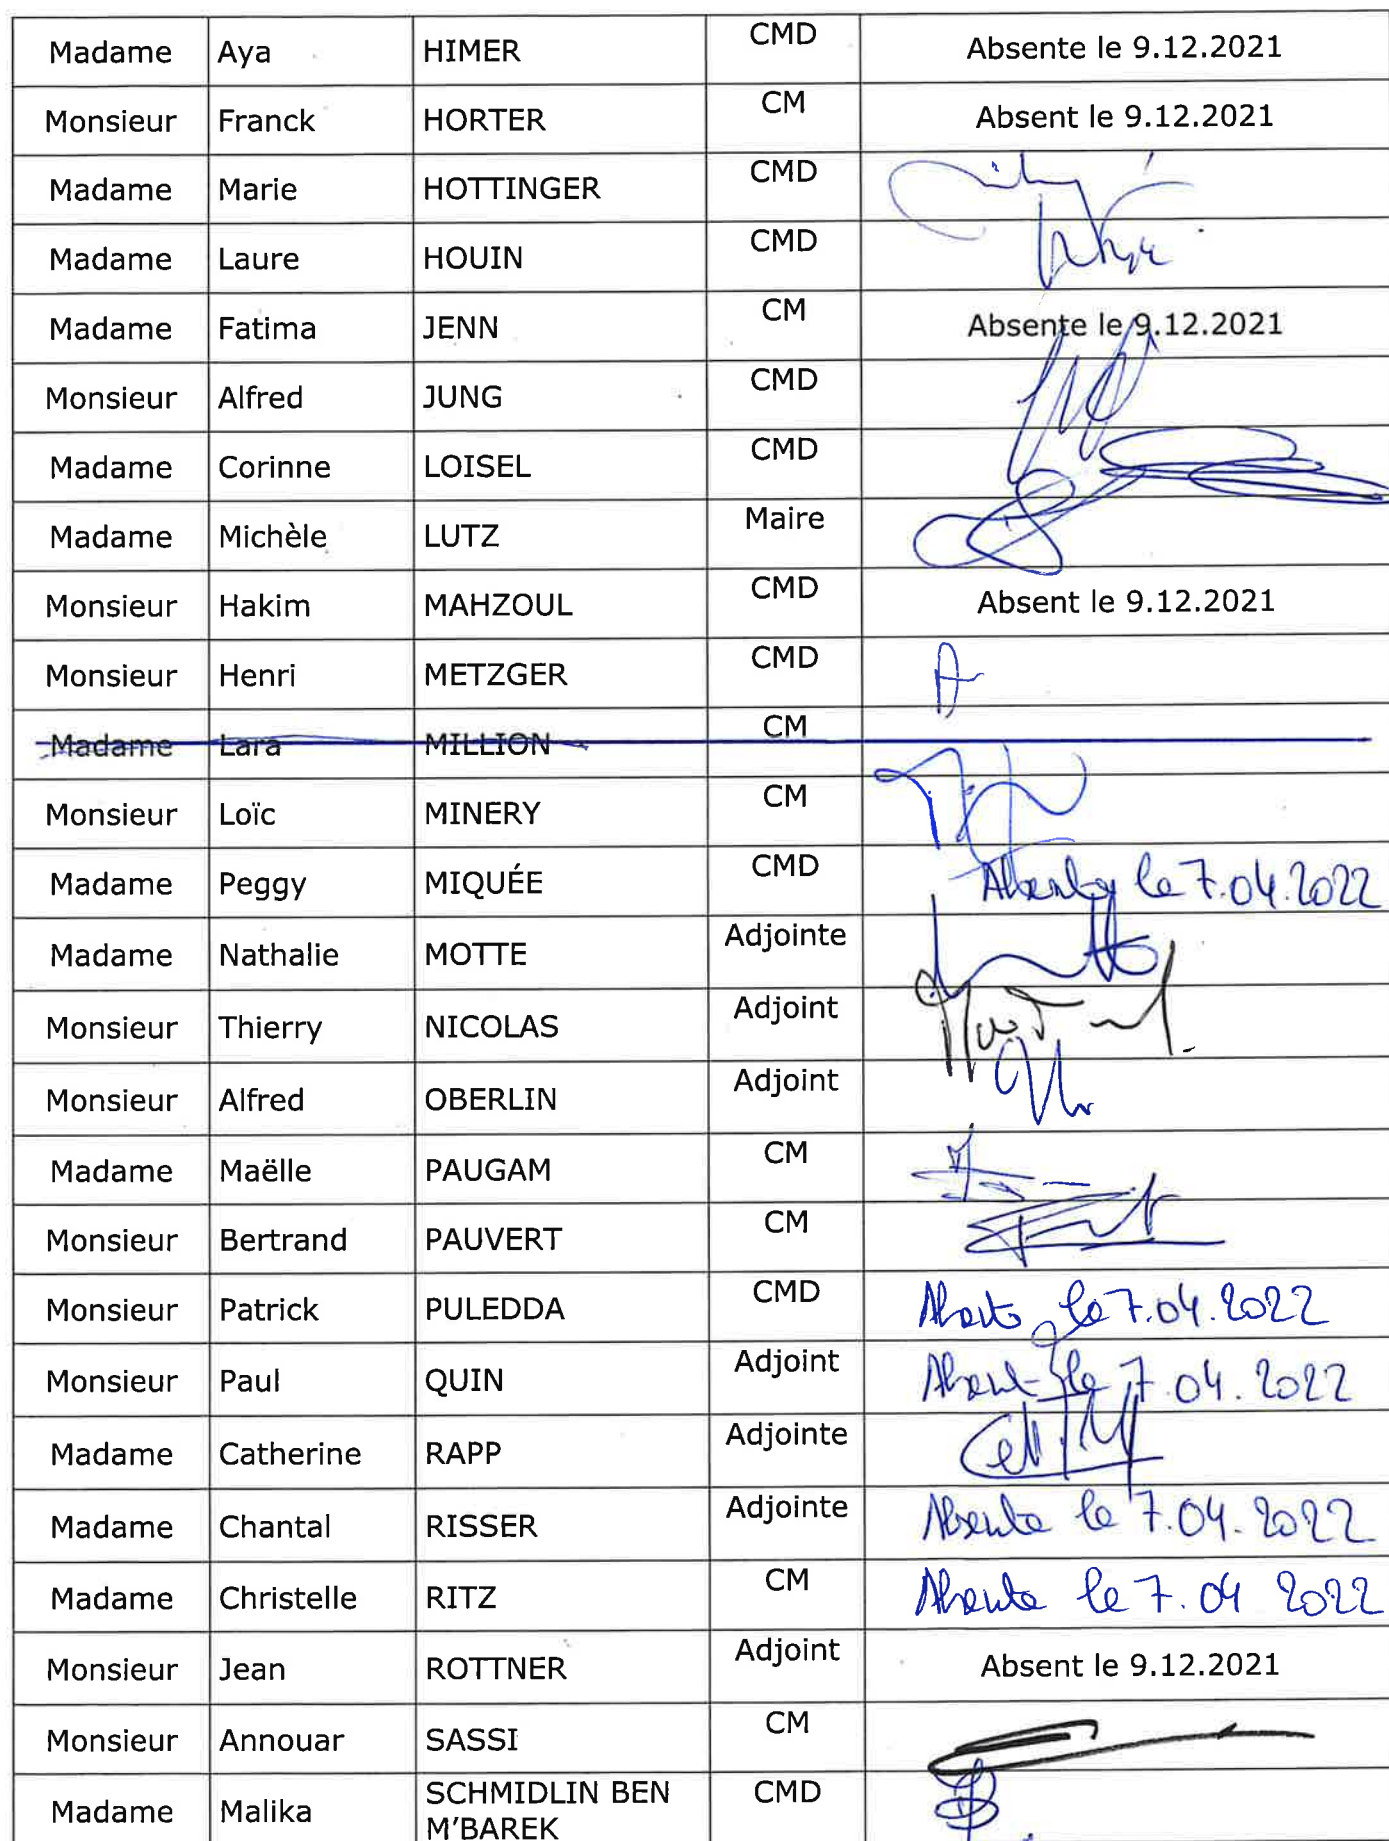 Madame Aya HIMER CMD Absente le 9.12.2021
Monsieur Franck HORTER CM Absent le 9.12.2021
Madame Marie HOTTINGER CMD
Madame Laure HOUIN CMD
Madame Fatima JENN CM Absente le 9.12.2021
Monsieur Alfred JUNG CMD
Madame Corinne LOISEL CMD
Madame Michèle LUTZ Maire
Monsieur Hakim MAHZOUL CMD Absent le 9.12.2021
Monsieur Henri METZGER CMD
Madame Lara MILLION CM
Monsieur Loïc MINERY CM
Madame Peggy MIQUÉE CMD Absente le 7.04.2022
Madame Nathalie MOTTE Adjointe
Monsieur Thierry NICOLAS Adjoint
Monsieur Alfred OBERLIN Adjoint
Madame Maëlle PAUGAM CM
Monsieur Bertrand PAUVERT CM
Monsieur Patrick PULEDDA CMD le 7.04.2022
Monsieur Paul QUIN Adjoint Absent le 7.04.2022
Madame Catherine RAPP Adjointe
Madame Chantal RISSER Adjointe Absente le 7.04.2022
Madame Christelle RITZ CM Absente le 7.04 2022
Monsieur Jean ROTTNER Adjoint Absent le 9.12.2021
Monsieur Annouar SASSI CM
Madame Malika SCHMIDLIN BEN CMD
M'BAREK